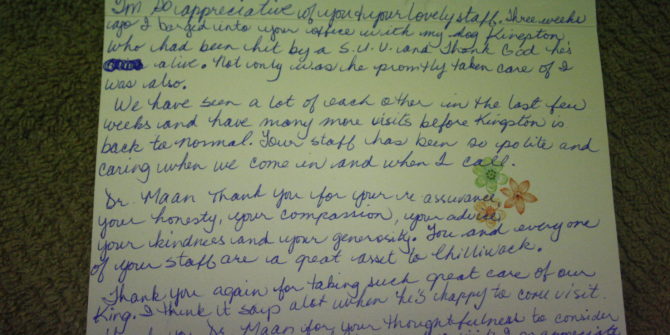 I'm so appreciative of you & your lovely staff. Three weeks
ago I barged into your office with my dog Kingston,
who had been hit by a S.U.V. and Thank God he's
alive. Not only was he promtly taken care of I
was also.
We have seen a lot of each other in the last few
weeks and have many more visits before Kingston is
back to normal. Your staff has been so polite and
caring when we come in and when I call.
Dr. Maan Thank you for your re assurance,
your honesty, your compassion, your advice
your kindness and your generosity. You and every one
of your staff are a great asset to Chilliwack.
Thank you again for taking such great care of our
King. I think it says alot when he's happy to come visit.
Dr. Maan for your thoughtfulness to consider